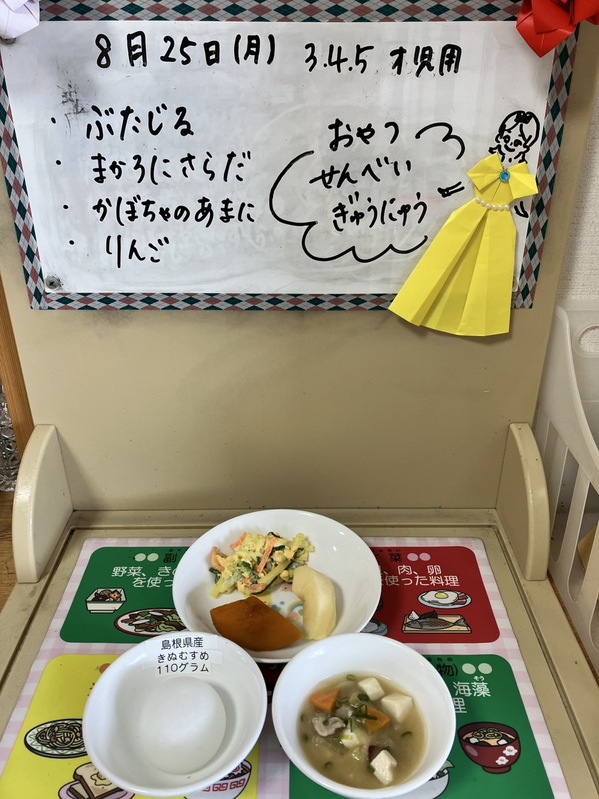 8月25日(月) 3.4.5才児用
・ぶたじる
・まかろにさらだ
・かぼちゃのあまに
・りんご
おやつ
せんべい
ぎゅうにゅう
副
野菜、き
を使っ
菜
、肉、卵
使った料理
島根県産
きぬむすめ
110グラム
物)
海藻
理